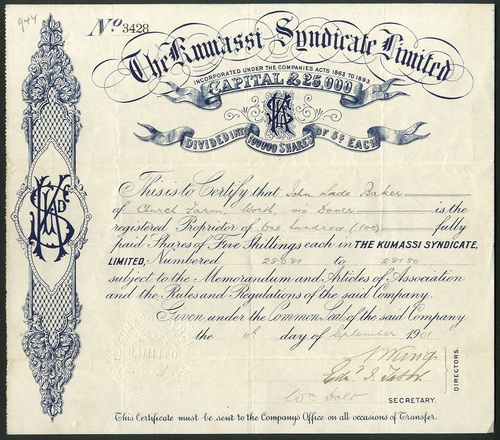 944
No. 3428
The Kumassi Syndicate Limited
INCORPORATED UNDER THE COMPANIES ACTS 1862 TO 1893
CAPITAL £25,000
DIVIDED INTO 100000 SHARES OF 5/- EACH
This is to Certify that John Lade Baker
of Church Farm, Worth, via Dover is the
registered Proprietor of One hundred (100) fully
paid Shares of Five Shillings each in THE KUMASSI SYNDICATE,
LIMITED, Numbered 28081 to 28180
subject to the Memorandum and Articles of Association
and the Rules and Regulations of the said Company.
Given under the Common Seal of the said Company
the 4th day of September 1901
DIRECTORS.
Wm Holt SECRETARY.
This Certificate must be sent to the Company's Office on all occasions of Transfer.